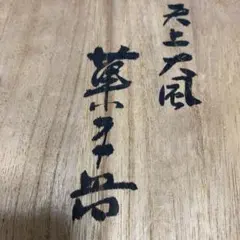 天上大風
菓子器